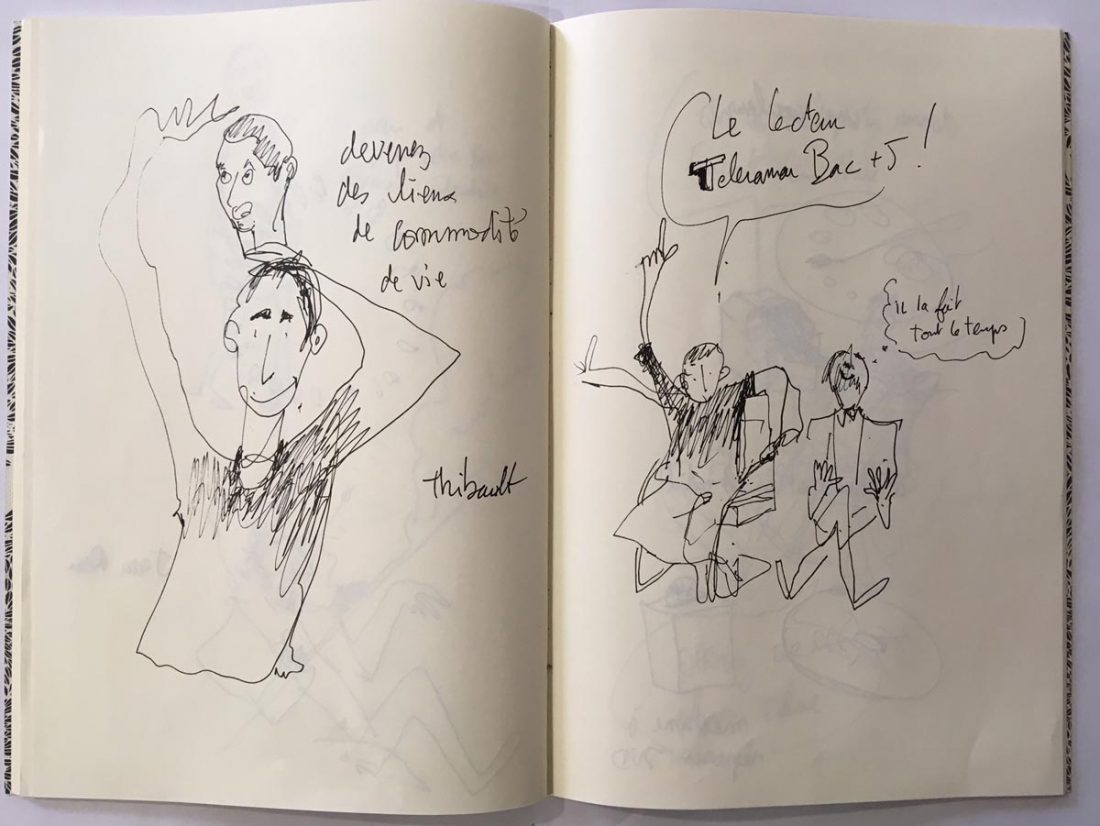 devenez
des liens
de commodité
de vie
Thibault
Le lecteur
Telerama Bac +5 !
il la fait
tout le temps